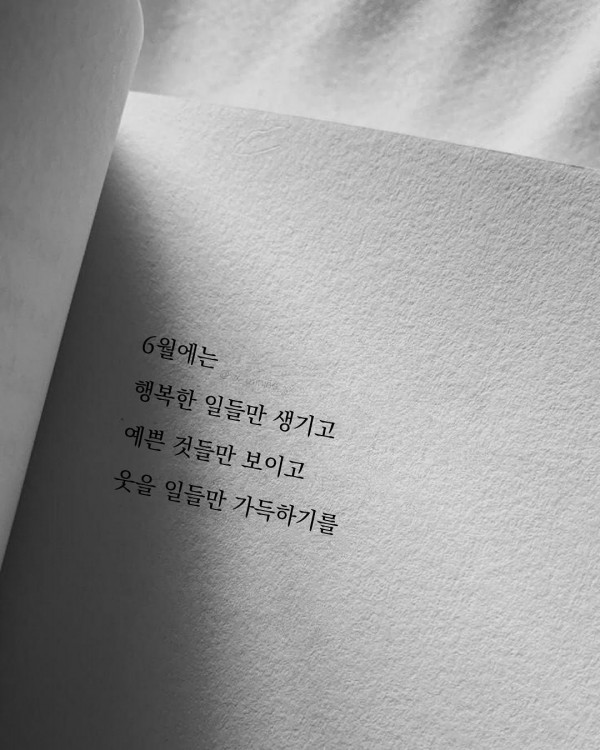 6월에는
행복한 일들만 생기고
예쁜 것들만 보이고
웃을 일들만 가득하기를